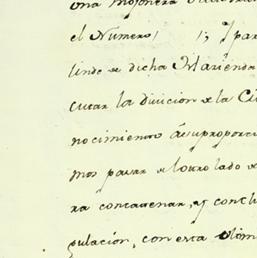 una mojonera
el Numero ( ); y par
linde de dicha Haziénda
cutar la divicion de la Ci
nocimiento á su proporci
mos pasar al otro lado de
ra contavenar, y conclu
pulación, con esta